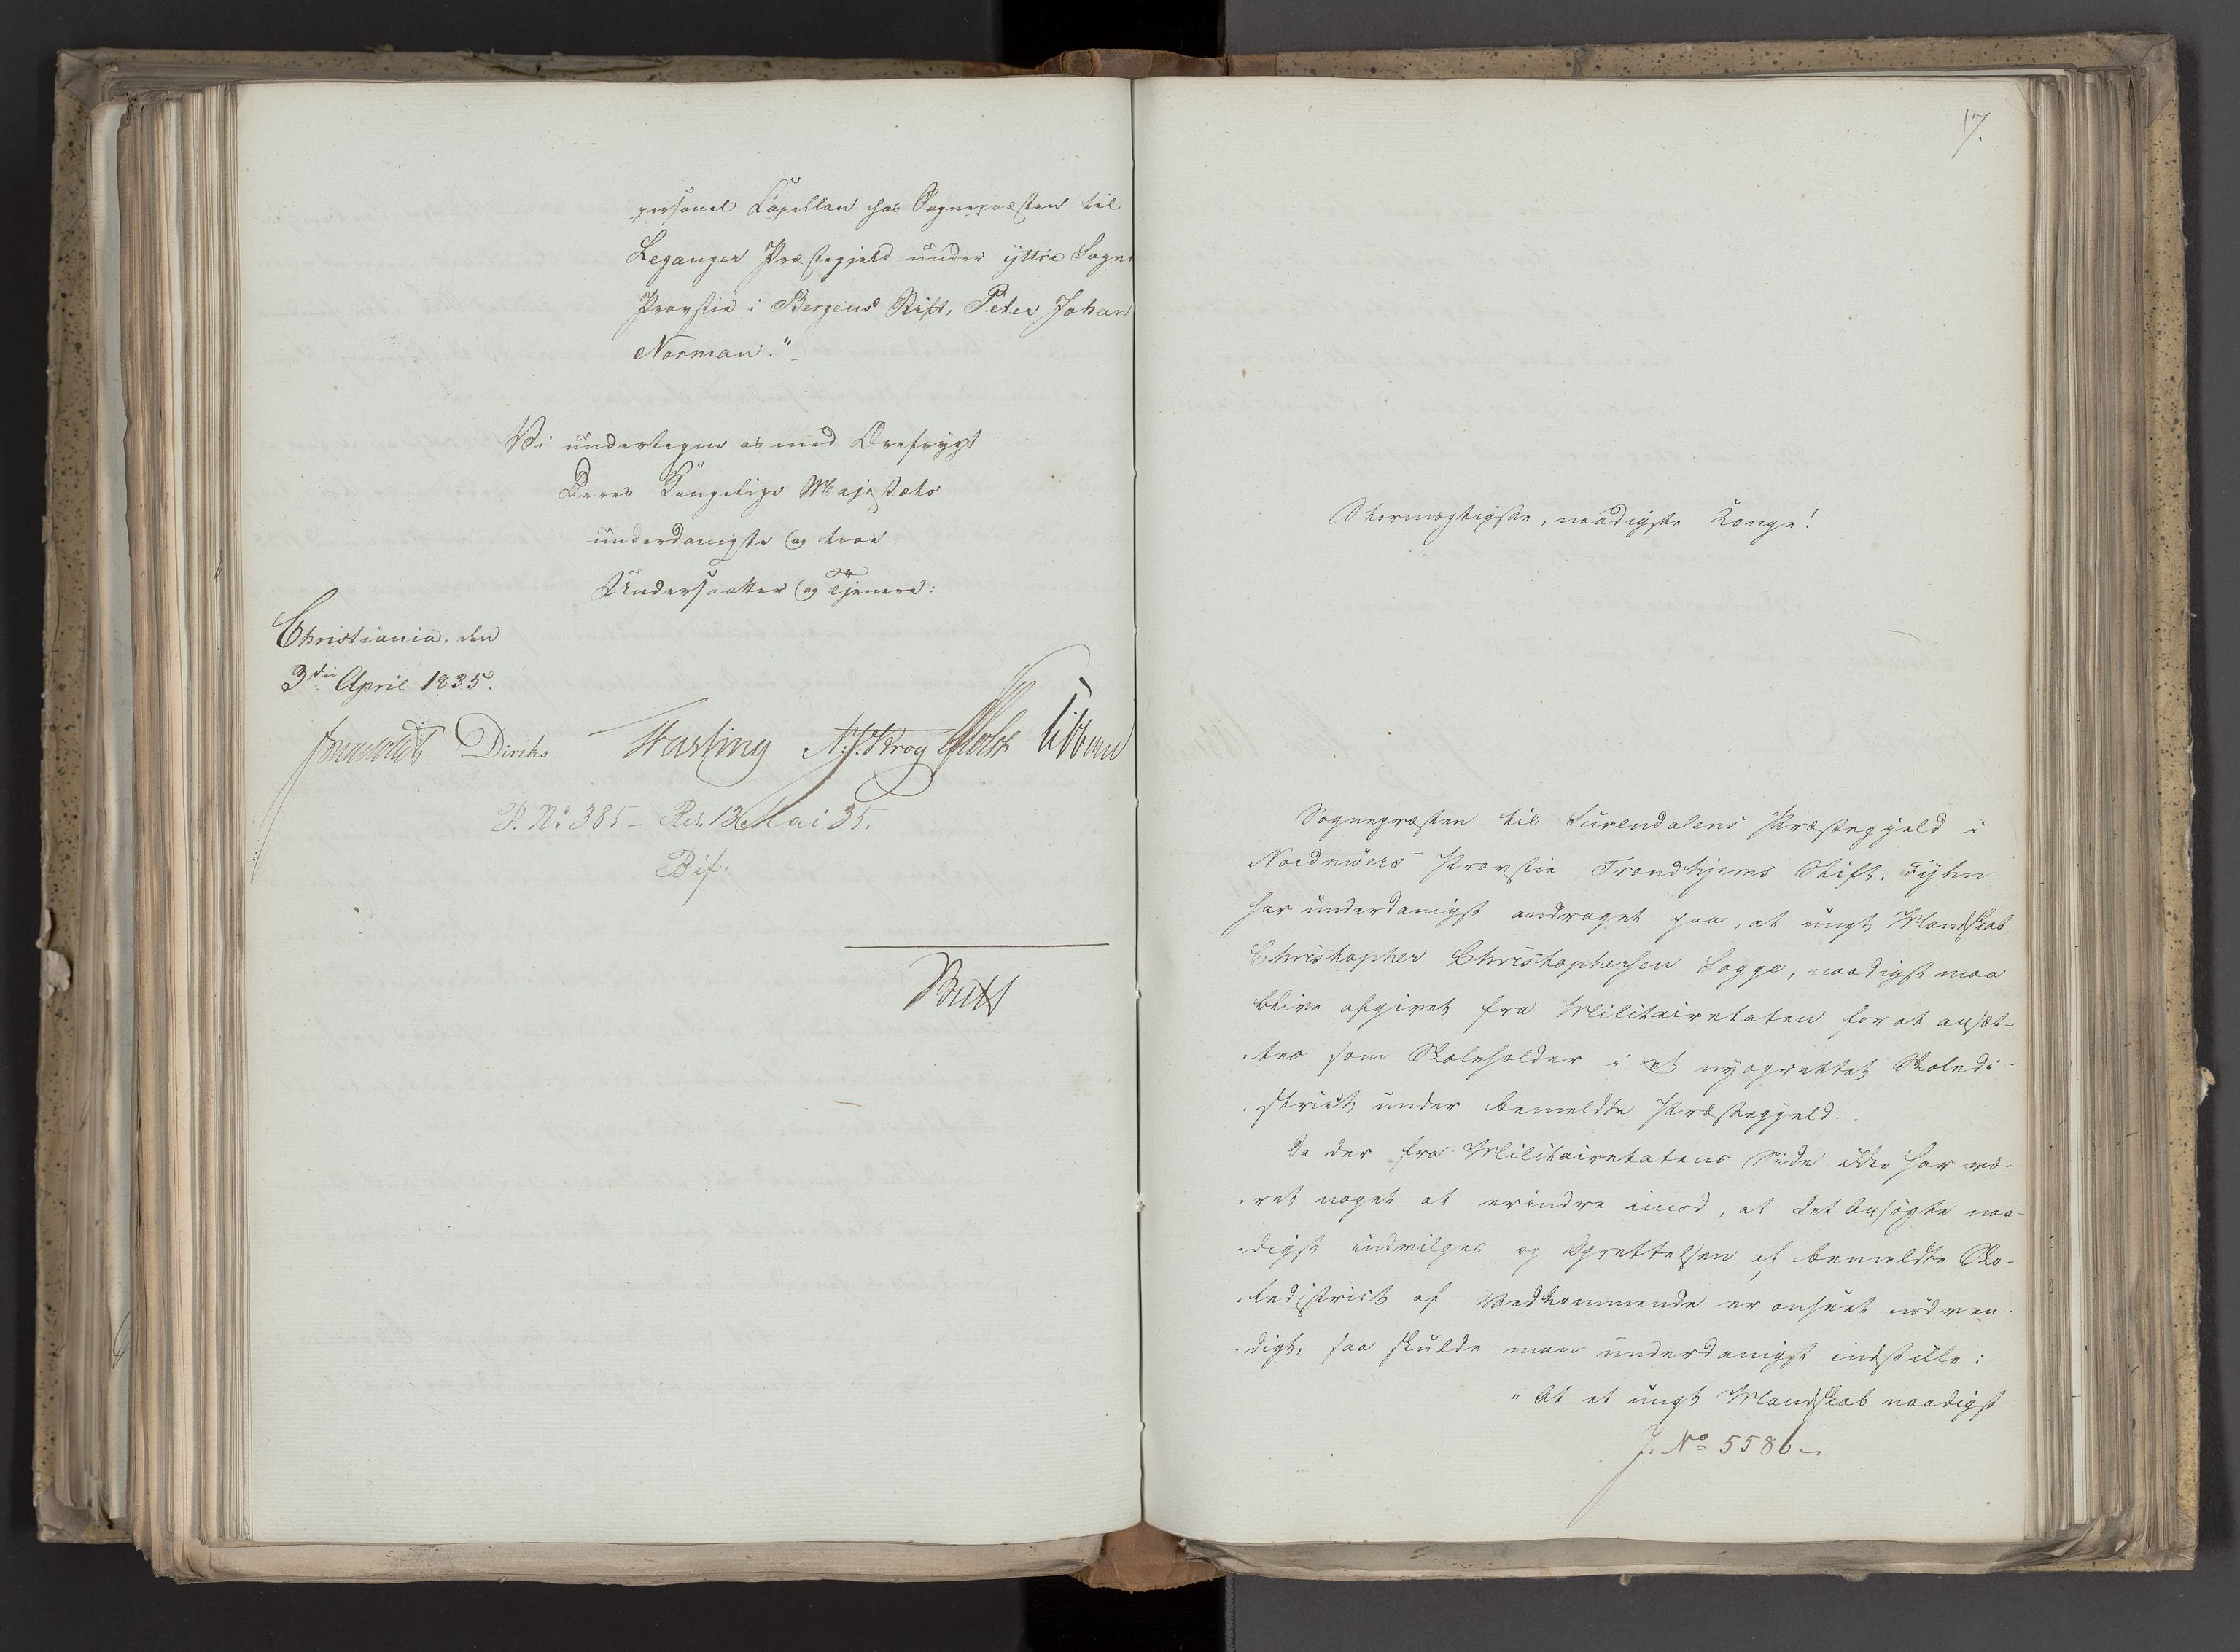 personel Capellan hos Sognepræsten til
Leganger Præstegjeld under yttre Sogns
Provstie i Bergens Stift, Peter Johan
Norman."
Vi undertegne os med Ærefrygt
Deres Kongelige Majestæts
underdanigste og troe
Undersaatter og Tjenere:
Christiania, den
3die April 1835.
Diriks N. J. Krog Holst Vibe
P. No 385 - Res. 13 Mai 35.
Bif.
17.
Stormægtigste, naadigste Konge!
Sognepræsten til Surendalens Præstegjeld i
Nordmöers Provstie, Trondhjems Stift, Fyhn
har underdanigst andraget paa, at ungt Mandskab
Christopher Christophersen Sogge, naadigst maa
blive afgivet fra Militairetaten for at ansæt-
tes som Skoleholder i et nyoprettet Skoledi-
strict under bemeldte Præstegjeld.
Da der fra Militairetatens Side ikke har væ-
ret noget at erindre imod, at det Ansögte naa-
digst indvilges og Oprettelsen af bemeldte Sko-
ledistrict af Vedkommende er anseet nödven-
digt, saa skulde man underdanigst indstille:
"At et ungt Mandskab naadigst
J. No 5586